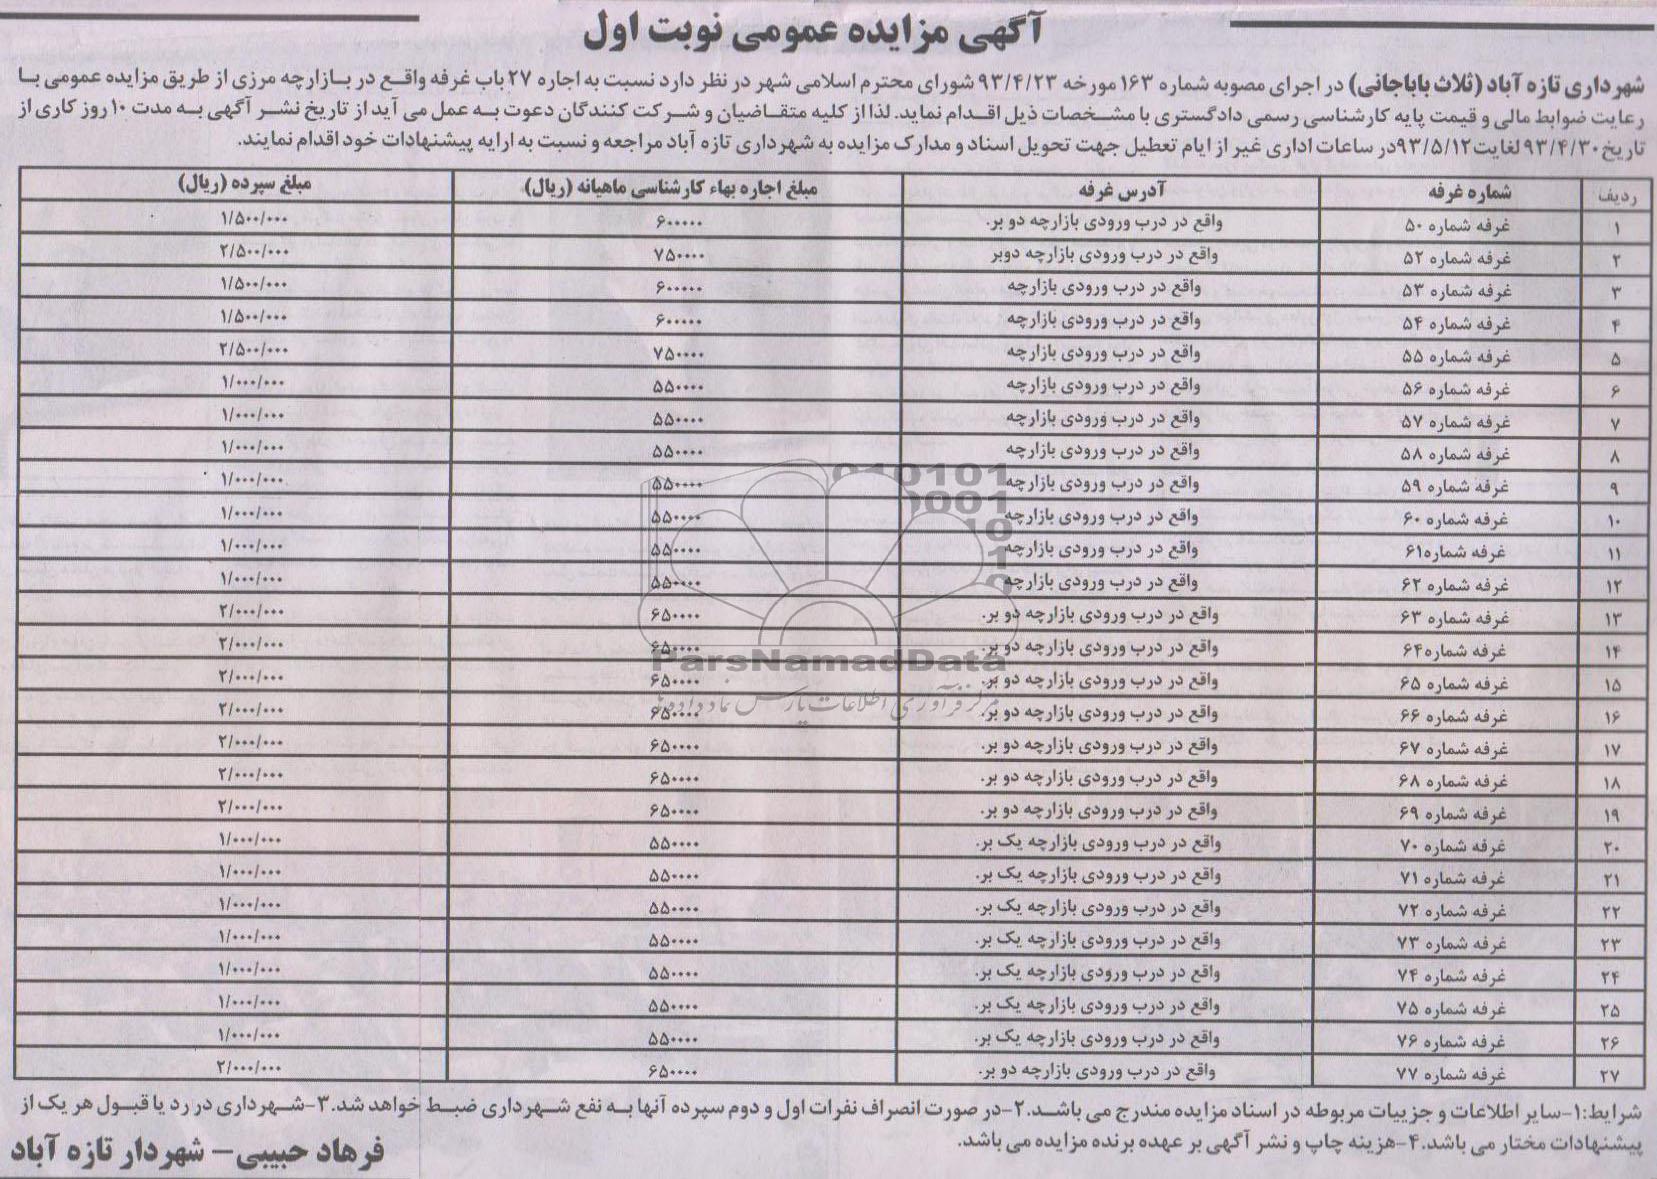 آگهی مزایده عمومی نوبت اول
شهرداری تازه آباد (ثلاث باباجانی) در اجرای مصوبه شماره ۱۶۳ مورخه ۹۳/۴/۲۳ شورای محترم اسلامی شهر در نظر دارد نسبت به اجاره ۲۷ باب غرفه واقع در بازارچه مرزی از طریق مزایده عمومی با
رعایت ضوابط مالی و قیمت پایه کارشناسی رسمی دادگستری با مشخصات ذیل اقدام نماید. لذا از کلیه متقاضیان و شرکت کنندگان دعوت به عمل می آید از تاریخ نشر آگهی به مدت ۱۰ روز کاری از
تاریخ ۹۳/۴/۳۰ لغایت ۹۳/۵/۱۲ در ساعات اداری غیر از ایام تعطیل جهت تحویل اسناد و مدارک مزایده به شهرداری تازه آباد مراجعه و نسبت به ارایه پیشنهادات خود اقدام نمایند.
ردیف شماره غرفه آدرس غرفه مبلغ اجاره بهاء کارشناسی ماهیانه (ریال) مبلغ سپرده (ریال)
۱ غرفه شماره ۵۰ واقع در درب ورودی بازارچه دو بر. ۶۰۰۰۰۰ ۱/۵۰۰/۰۰۰
۲ غرفه شماره ۵۲ واقع در درب ورودی بازارچه دوبر ۷۵۰۰۰۰ ۲/۵۰۰/۰۰۰
۳ غرفه شماره ۵۳ واقع در درب ورودی بازارچه ۶۰۰۰۰۰ ۱/۵۰۰/۰۰۰
۴ غرفه شماره ۵۴ واقع در درب ورودی بازارچه ۶۰۰۰۰۰ ۱/۵۰۰/۰۰۰
۵ غرفه شماره ۵۵ واقع در درب ورودی بازارچه ۷۵۰۰۰۰ ۲/۵۰۰/۰۰۰
۶ غرفه شماره ۵۶ واقع در درب ورودی بازارچه ۵۵۰۰۰۰ ۱/۰۰۰/۰۰۰
۷ غرفه شماره ۵۷ واقع در درب ورودی بازارچه ۵۵۰۰۰۰ ۱/۰۰۰/۰۰۰
۸ غرفه شماره ۵۸ واقع در درب ورودی بازارچه ۵۵۰۰۰۰ ۱/۰۰۰/۰۰۰
۹ غرفه شماره ۵۹ واقع در درب ورودی بازارچه ۵۵۰۰۰۰ ۱/۰۰۰/۰۰۰
۱۰ غرفه شماره ۶۰ واقع در درب ورودی بازارچه ۵۵۰۰۰۰ ۱/۰۰۰/۰۰۰
۱۱ غرفه شماره۶۱ واقع در درب ورودی بازارچه ۵۵۰۰۰۰ ۱/۰۰۰/۰۰۰
۱۲ غرفه شماره ۶۲ واقع در درب ورودی بازارچه ۵۵۰۰۰۰ ۱/۰۰۰/۰۰۰
۱۳ غرفه شماره ۶۳ واقع در درب ورودی بازارچه دو بر. ۶۵۰۰۰۰ ۲/۰۰۰/۰۰۰
۱۴ غرفه شماره۶۴ واقع در درب ورودی بازارچه دو بر. ۶۵۰۰۰۰ ۲/۰۰۰/۰۰۰
۱۵ غرفه شماره ۶۵ واقع در درب ورودی بازارچه دو بر. ۶۵۰۰۰۰ ۲/۰۰۰/۰۰۰
۱۶ غرفه شماره ۶۶ واقع در درب ورودی بازارچه دو بر. ۶۵۰۰۰۰ ۲/۰۰۰/۰۰۰
۱۷ غرفه شماره ۶۷ واقع در درب ورودی بازارچه دو بر. ۶۵۰۰۰۰ ۲/۰۰۰/۰۰۰
۱۸ غرفه شماره ۶۸ واقع در درب ورودی بازارچه دو بر. ۶۵۰۰۰۰ ۲/۰۰۰/۰۰۰
۱۹ غرفه شماره ۶۹ واقع در درب ورودی بازارچه دو بر. ۶۵۰۰۰۰ ۲/۰۰۰/۰۰۰
۲۰ غرفه شماره ۷۰ واقع در درب ورودی بازارچه یک بر. ۵۵۰۰۰۰ ۱/۰۰۰/۰۰۰
۲۱ غرفه شماره ۷۱ واقع در درب ورودی بازارچه یک بر. ۵۵۰۰۰۰ ۱/۰۰۰/۰۰۰
۲۲ غرفه شماره ۷۲ واقع در درب ورودی بازارچه یک بر. ۵۵۰۰۰۰ ۱/۰۰۰/۰۰۰
۲۳ غرفه شماره ۷۳ واقع در درب ورودی بازارچه یک بر. ۵۵۰۰۰۰ ۱/۰۰۰/۰۰۰
۲۴ غرفه شماره ۷۴ واقع در درب ورودی بازارچه یک بر. ۵۵۰۰۰۰ ۱/۰۰۰/۰۰۰
۲۵ غرفه شماره ۷۵ واقع در درب ورودی بازارچه یک بر. ۵۵۰۰۰۰ ۱/۰۰۰/۰۰۰
۲۶ غرفه شماره ۷۶ واقع در درب ورودی بازارچه یک بر. ۵۵۰۰۰۰ ۱/۰۰۰/۰۰۰
۲۷ غرفه شماره ۷۷ واقع در درب ورودی بازارچه دو بر. ۶۵۰۰۰۰ ۲/۰۰۰/۰۰۰
ParsNamadData
مرکز فرآوری اطلاعات پارس نماد داده ها
شرایط:۱-سایر اطلاعات و جزییات مربوطه در اسناد مزایده مندرج می باشد.۲-در صورت انصراف نفرات اول و دوم سپرده آنها به نفع شهرداری ضبط خواهد شد.۳-شهرداری در رد یا قبول هر یک از
پیشنهادات مختار می باشد.۴-هزینه چاپ و نشر آگهی بر عهده برنده مزایده می باشد.
فرهاد حبیبی- شهردار تازه آباد